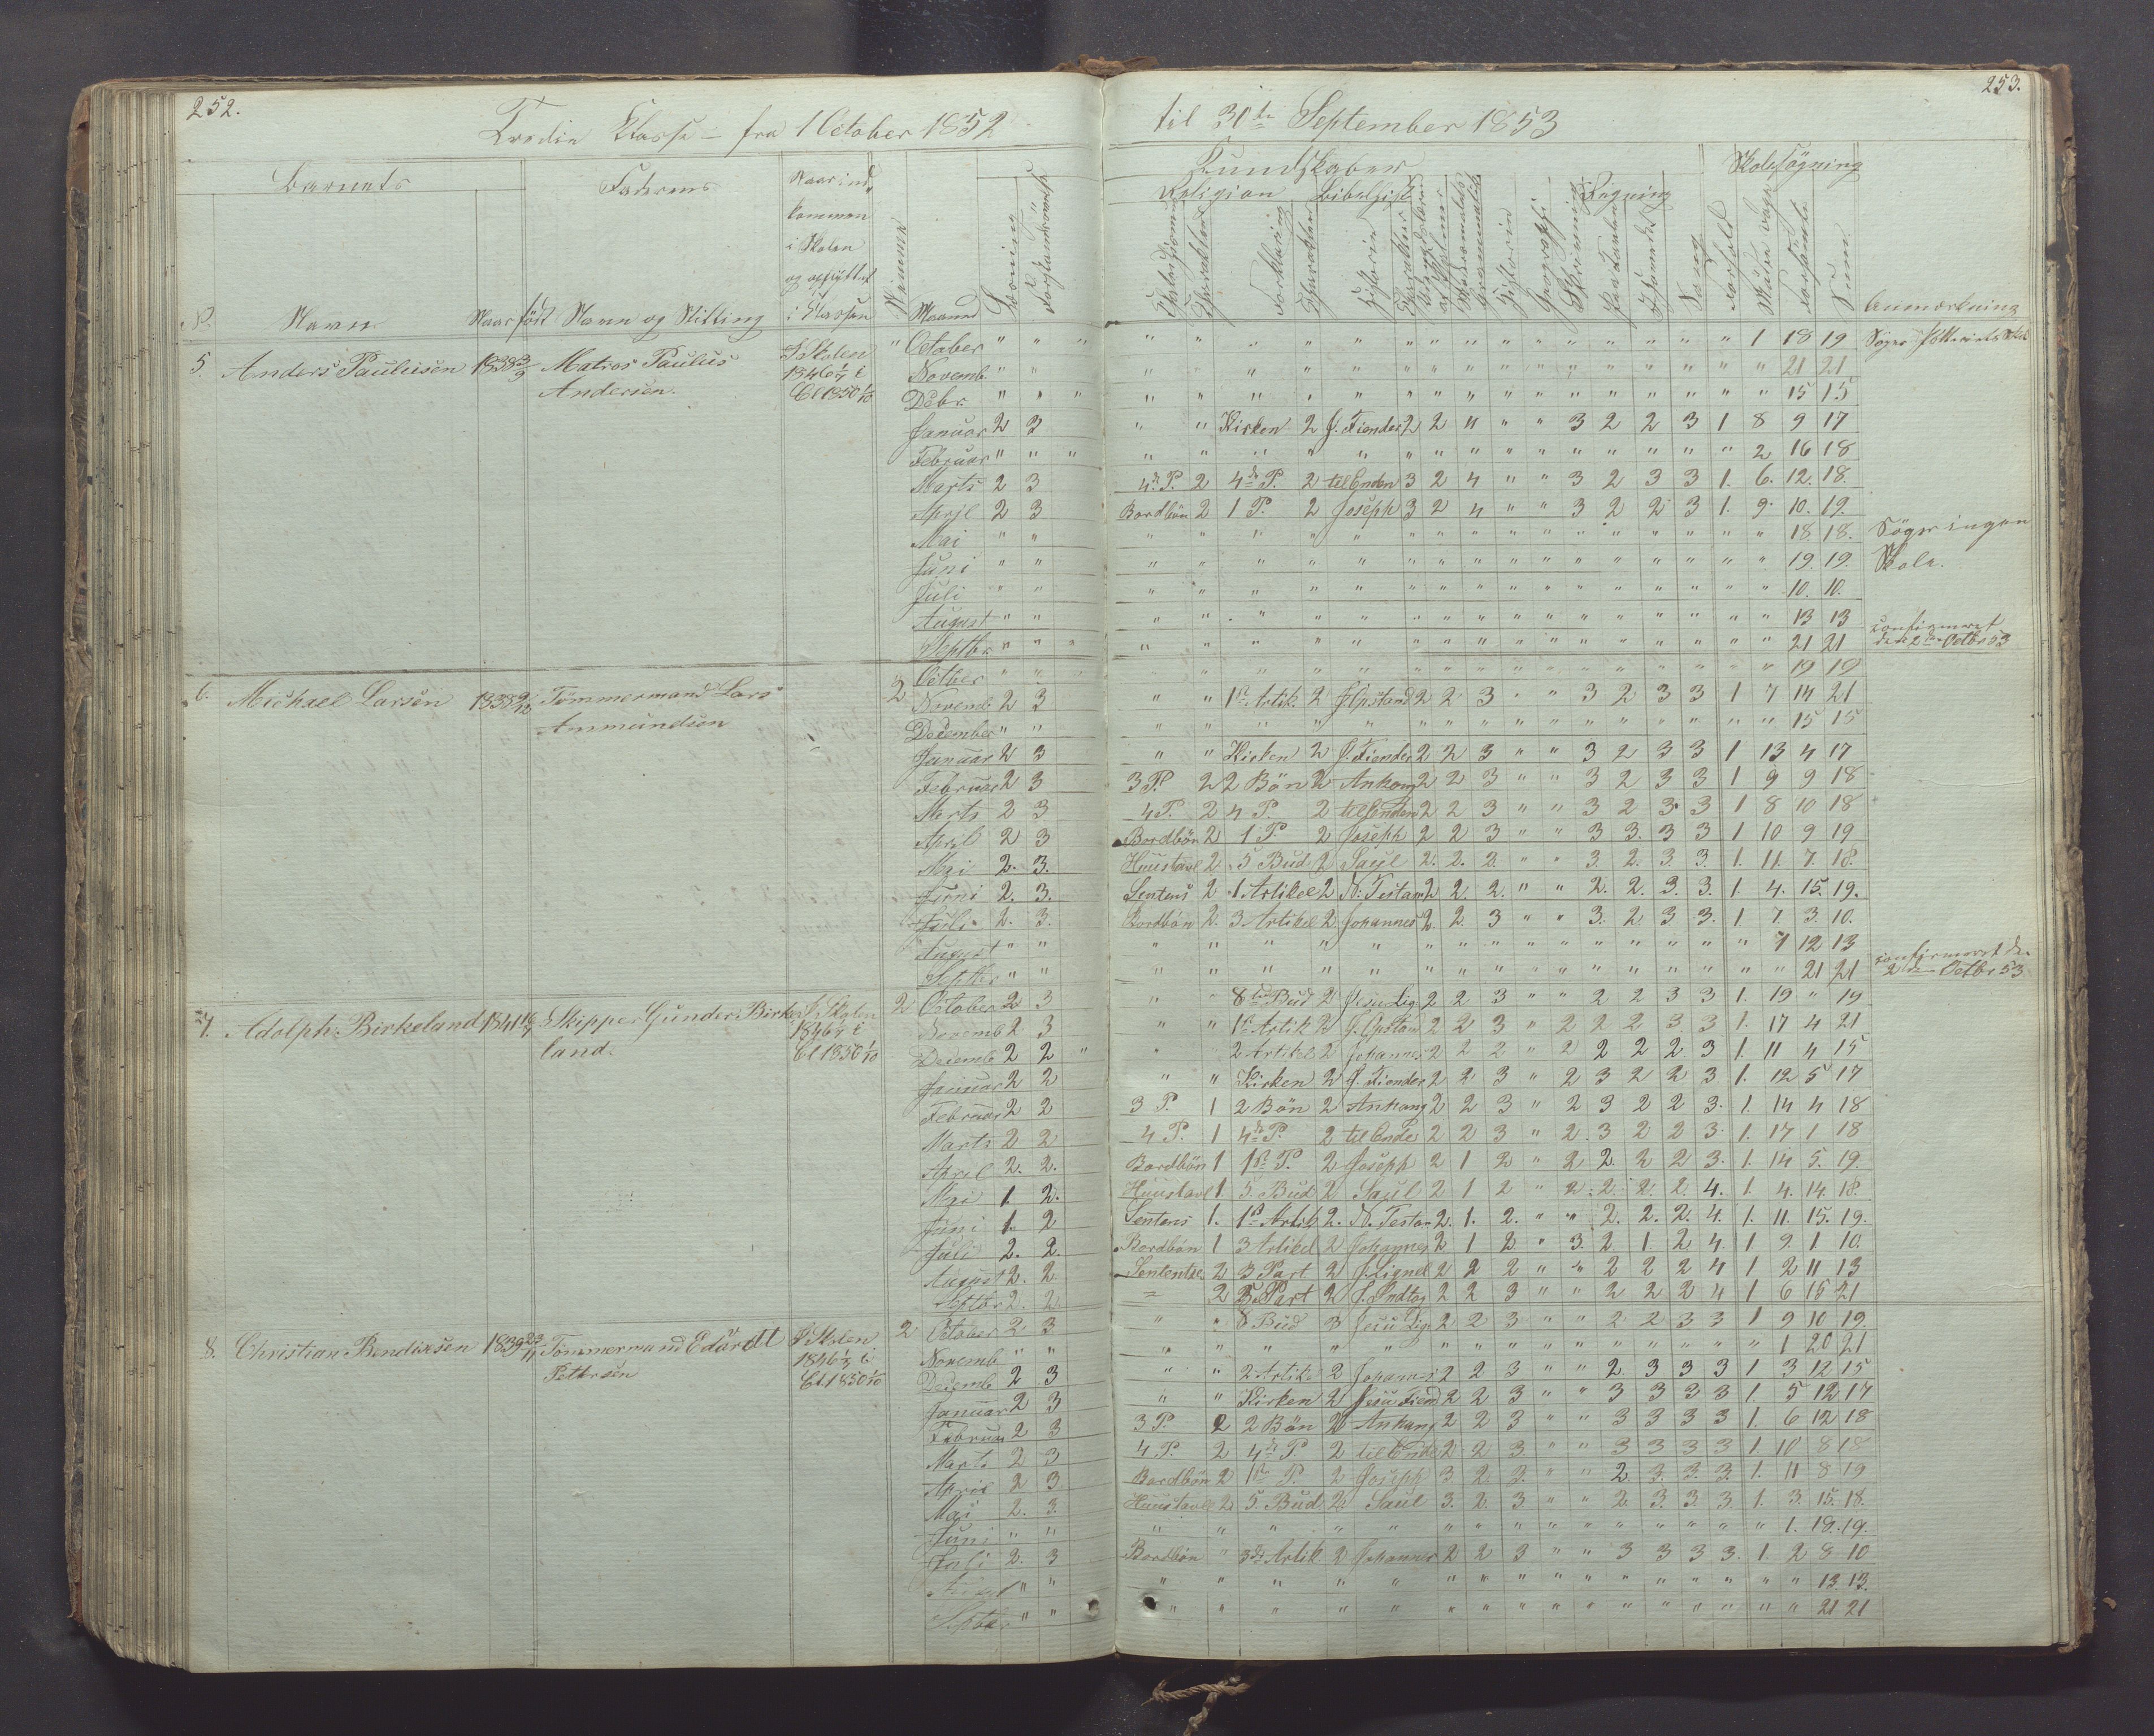 252.
Tredie Klasse – fra 1 October 1852
Barnets
Faderens
Naar ind
kommen
i Skolen
og opflyttet
i Klassen
No.
Navn
Naar født
Navn og Stilling
Maaned
5. Anders Paulusen 1838 3/9 Matros Paulus Andersen. I Skolen 1846 1/7 i Cl 1850 1/10
October " " "
Novemb. " "
Decbr. " " "
Januar 2 3
Februar " " "
Marts 2 3
April 2 3
Mai " "
Juni " "
Juli " "
August " "
Septbr. " " "
6. Michael Larsen Tømmermand Lars Ammundsen 2
Octber " " "
Novemb 2 3
December " "
Januar 2 3
Februar 2 3
Marts 2 3
April 2 3
Mai 2. 3.
Juni 2. 3.
Juli 2. 3.
August " "
Septbr " "
7. Adolph Birkeland Skipper Gunder Birkeland. I Skolen 1846 1/7 i Cl 1850 1/10 2
October 2 3
Novemb 2 3
Decemb 2 2 "
Januar 2 2
Februar 2 2
Marts 2 2
April 2. 2.
Mai 1. 2.
Juni 1. 2
Juli 2. 2.
August 2. 2
Septbr 2. 2.
8. Christian Bendixsen 1839 23/11 Tømmermand Edardt Pettersen I Skolen 1846 1/7 i Cl. 1850 1/10 2
October 2 3
Novemb " "
Decemb 2 3
Januar 2 3
Februar 2 3
Marts 2 3
April 2 3
Mai 2. 3.
Juni " "
Juli 2. 3
August " "
Septbr " "
253.
til 30te September 1853
Kundskaber
Skolesøgning
Religion
Bibelhist
Regning
Forklaring
Historie
Historie
Geographi
Skrivning
Sang
Forhold
Forsømte
Sum
Anmærkning
" " " " " " " " " " " " " " " 1 18 19
" " " " " " " " " " " " " " " " 21 21
" " " " " " " " " " " " " " " " 15 15
" " Kirken 2 J. Fiender 2 2 " " " 3 2 2 3 1 8 9 17
" " " " " " " " " " " " " " " 2 16 18
4de P. 2 4de P. 2 til Enden 3 2 4 " " 3 2 3 3 1. 6. 12. 18.
Bordbön 2 1 P. 2 Joseph 3 2 4 " " 3 2 2 3 1. 9. 10. 19.
" " " " " " " " " " " " " " " " 18 18. Søger ingen
" " " " " " " " " " " " " " " " 19. 19. Skole.
" " " " " " " " " " " " " " " " 10. 10.
" " " " " " " " " " " " " " " " 13 13 confirmeret
" " " " " " " " " " " " " " " " 21 21 den 2den Octbr 53
" " " " " " " " " " " " " " " " 19 19
" " 1ste Artik. 2 J Opstand 2 2 3 " " 3 2 3 3 1 7 14 21
" " " " " " " " " " " " " " " " 15 15
" " Kirken 2 J. Fiender 2 2 3 " " 3 2 3 3 1 13 4 17
3 P. 2 2 Bön 2 Anhang 2 2 3 " " 3 2 3 3 1 9 9 18
4 P. 2 4 P. 2 til Enden 2 2 3 " " 3 2 3 3 1 8 10 18
Bordbön 2 1 P. 2 Joseph 2 2 3 " " 3 3. 3 3 1 10 9 19
Huustavl 2 5 Bud 2 Saul 2. 2. 2. " " 3. 2. 3. 3. 1. 11. 7. 18.
Sentens 2 1 Artikel 2 N. Testam 2 2. 2. " " 2. 2. 3. 3. 1. 4. 15. 19.
Bordbön 2. 3 Artikel 2 Johannes 2. 2. 3 " " 3. 2. 3 3. 1 7 3. 10.
" " " " " " " " " " " " " " " 1 12 13
" " " " " " " " " " " " " " " " 21 21 confirmeret den 2den Octbr 53
" " 8de Bud 2 Jesu Lig 2 2 3 " " 2 2 3 3 1. 19 " 19
" " 1ste Artik 2 J. Opstan 2 2 3 " 2 2 2 3 3 1. 17 4 21
" " 2 Artikel 2 Johannes 2 2 2 " 2 2 2 2 3 1. 11 4 15
" " Kirken 2 J. Fiender 2 2 3 " 2 3 2 2 3 1. 12 5 17
3 P. 1 2 Bön 2 Anhang 2 2 3 " 2 3 2 2 3. 1. 14 4 18
4 P. 1 4de P. 2 til Ende 2 2 3 " 2. 3 2 2 3. 1. 17 1 18
Bordbön 1 1ste P. 2 Joseph 2 1 2 " 2 2. 2 2 3. 1. 14 5. 19.
Huustavl 1. 5. Bud 2 Saul 2 1 2 " 2. 2. 2. 2. 4. 1. 4. 14. 18.
Sentens 1. 1ste Artik 2. N. Testam 2. 1. 2. " " 2. 2. 2. 4. 1. 11. 15. 19.
Bordbön 1 3 Artikel 2 Johannes 2 1 2 " 3. 2. 1. 2 4. 1. 9. 1. 10.
Sententse 2 3 Part 2 J. Lignel 2 2 2 " " 2 2 2 4 1 2 11 13
" 2 5. Part 2 J. Indtog 2 2 3 " " 2 2 2 4 1 6 15 21
" " 8 Bud 3 Jesu Lig 2 2 3 " " 2 2 3 3 1 9 10 19.
" " " " " " " " " " " " " " " 1 20 21
" " 2 Artikl 2 Johannes 2 2 3 " " 2 3 3 3 1 3 12 15
" " Kirken 2 Jesu Fiend 2 2 3 " " 3 3 3 3 1. 5 12 17
3 P. 2 2 Bön 2 Anhang 2 2 3 " " 3 3 3 3 1. 6 12 18
4 P. 2 4de P 2 til Ende 2 2 3 " " 3 3 3 3 1 10 8 18
Bordbön 2 1ste P. 2 Joseph 3 2 3. " " 2. 3. 3. 3. 1. 11 8 19
Huustavle 2 5. Bud 2. Saul 3. 2. 3. " " 2. 3. 3. 3. 1. 3. 15. 18.
" " " " " " " " " " " " " " " 1. 18. 19.
Bordbön " 3die Artik 2 Johannes 2 2 3 " " 3 3 3 3. 1. 2 8 10
" " " " " " " " " " " " " " " " 13 13.
" " " " " " " " " " " " " " " " 21 21